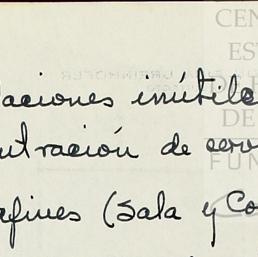 laciones inútile
ntración de serv
afines (Sala y Co
CEN
ES
DE
FUN